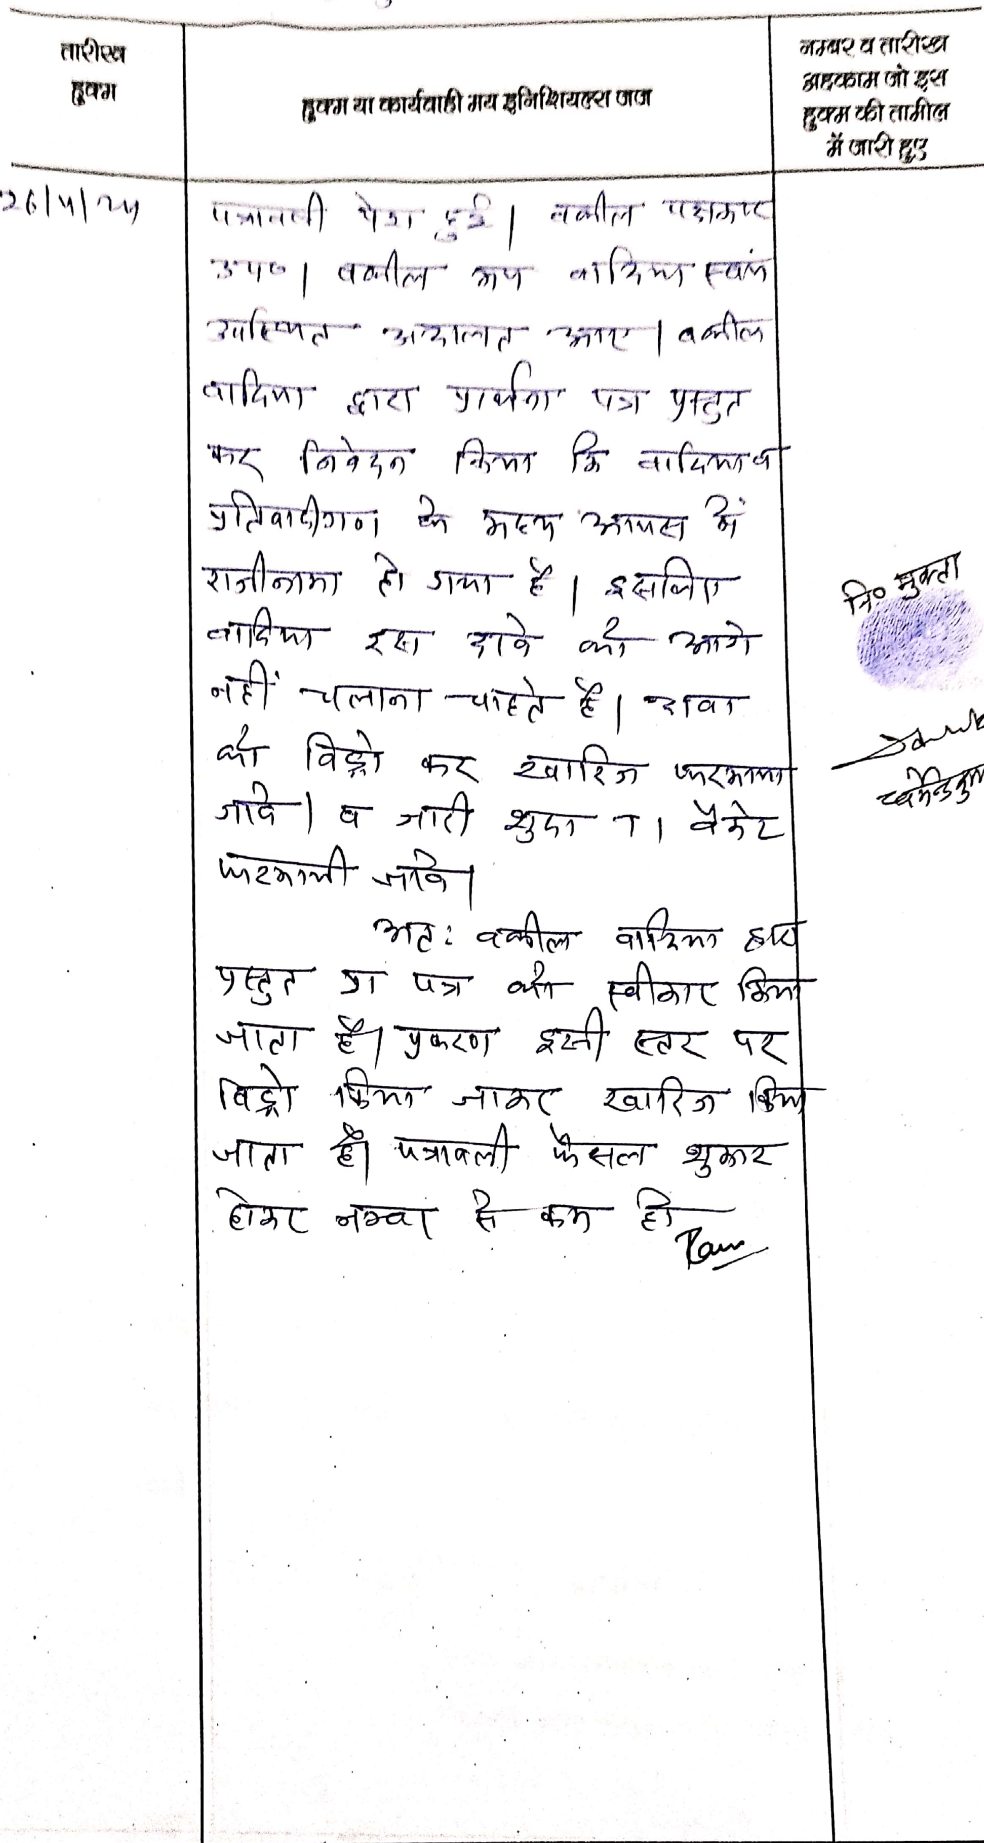 तारीख
हुक्म
हुक्म या कार्यवाही मय इनिशियल्स जज
नम्बर व तारीख
अहकाम जो इस
हुक्म की तामील
में जारी हुए
26/4/24
पत्रावली पेश हुई। वकील पक्षकार
उप०। वकील मय वादिया स्वयं
उपस्थित अदालत आए। वकील
वादिया द्वारा प्रार्थना पत्र प्रस्तुत
कर निवेदन किया कि वादिया व
प्रतिवादीगण के मध्य आपस में
राजीनामा हो गया है। इसलिए
वादिया इस दावे को आगे
नहीं चलाना चाहते है। दावा
को विड्रो कर खारिज फरमाया
जावे। व जारी शुदा T। वैकेट
फरमायी जावे।
अत: वकील वादिया द्वारा
प्रस्तुत प्रा पत्र को स्वीकार किया
जाता है। प्रकरण इसी स्तर पर
विड्रो किया जाकर खारिज किया
जाता है। पत्रावली फैसल शुमार
होकर नम्बर से कम हो
नि० मुक्ता